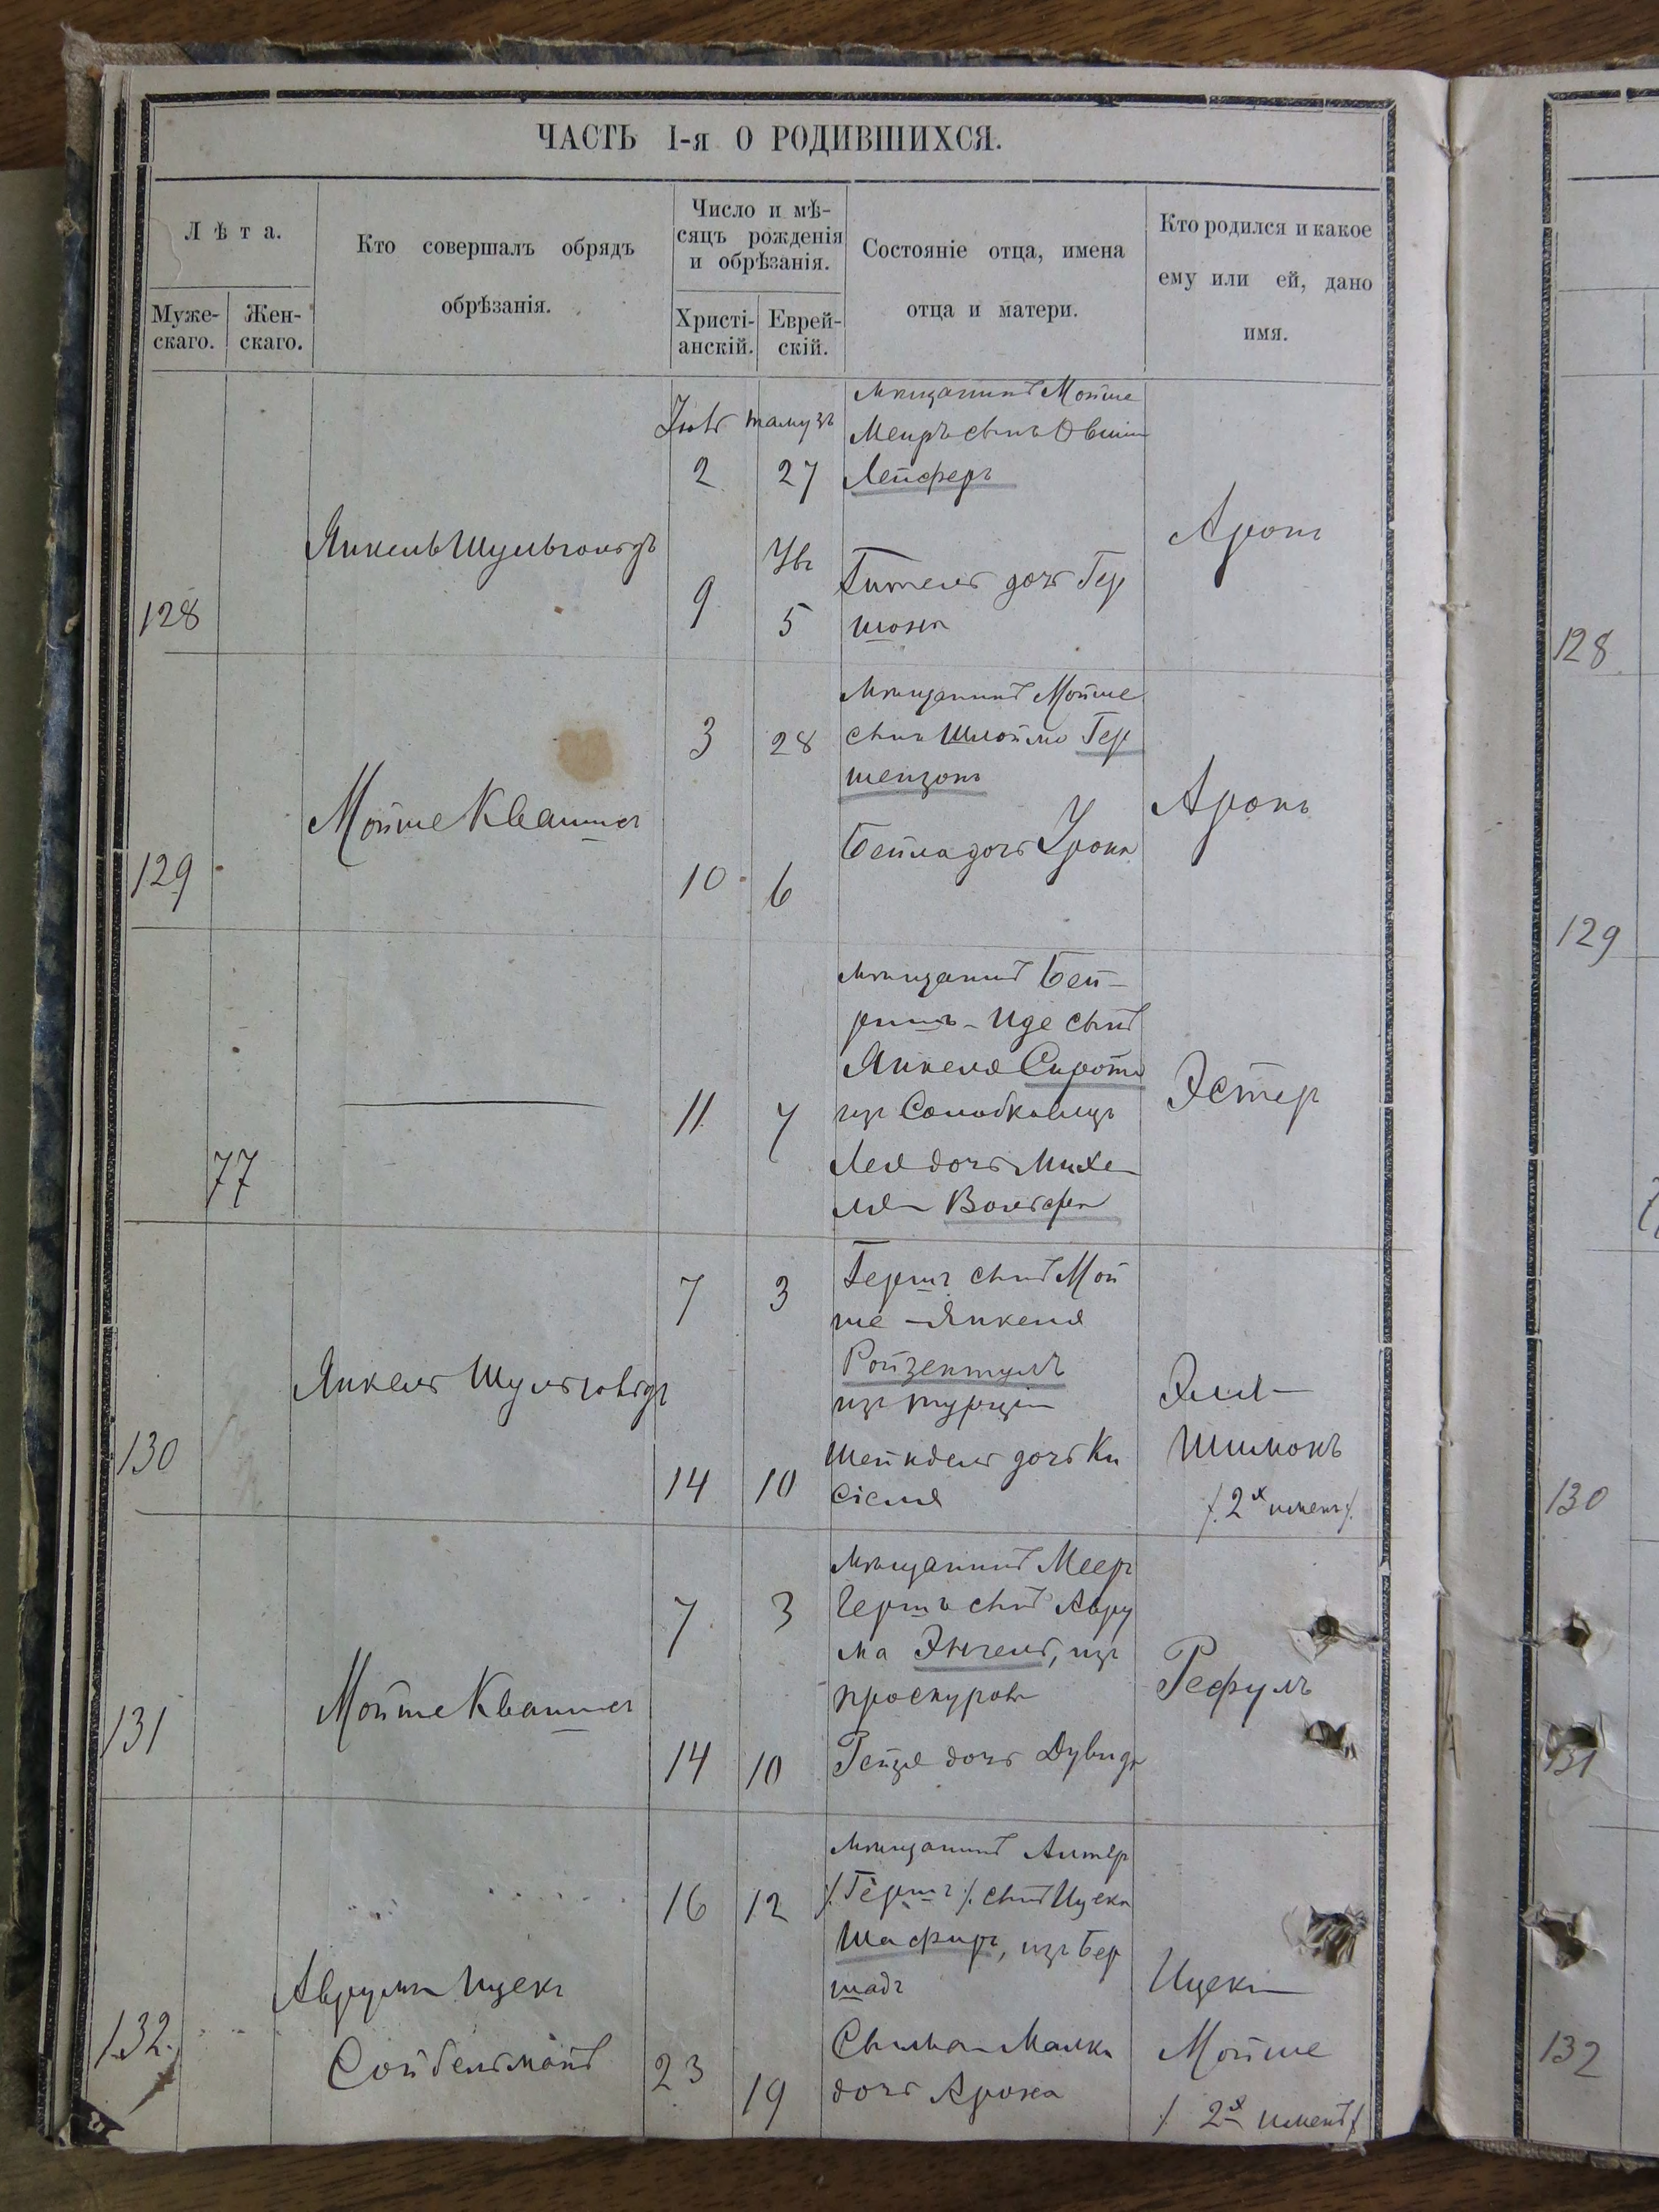 ЧАСТЬ I-я О РОДИВШИХСЯ.
Лѣта.
Муже-
скаго.
Жен-
скаго.
Кто совершалъ обрядъ
обрѣзанія.
Число и мѣ-
сяцъ рожденія
и обрѣзанія.
Христі-
анскій.
Еврей-
скій.
Состояніе отца, имена
отца и матери.
Кто родился и какое
ему или ей, дано
имя.
128
Янкель
Іюль
2
9
тамузъ
27
5
мѣщанинъ Мойше
Меиръ сынъ
Лейферъ
Гитель дочь Гер
шона
Аронъ
129
Мойше
3
10
28
6
мѣщанинъ Мойше
сынъ Шлоймо Гер
шензонъ
Бейла дочь
Аронъ
77
11
7
мѣщанинъ Бей-
ришъ-Иде сынъ
Янкеля Сирота
изъ Солобковецъ
Лея дочь Михе-
ля Вольфа
Эстер
130
Янкель
7
14
3
10
Гершъ сынъ Мой
ше-Янкеля
Ройзентулъ
изъ турціи
Шейндель дочь Ки
сіеля
Эля-
Шимонъ
/. 2х именъ /.
131
Мойше
7
14
3
10
мѣщанинъ Меер
Гершъ сынъ Авру
ма Энгель, изъ
проскурова
Рейзя дочь Дувида
Рефулъ
132.
Аврумъ Ицекъ
Сойбельманъ
16
23
12
19
мѣщанинъ Алтер
/. Гершъ /. сынъ Ицека
Шафиръ, изъ Бер
шадъ
Малка
дочь Арона
Ицекъ
Мойше
/. 2х именъ /.
128
129
130
131
132